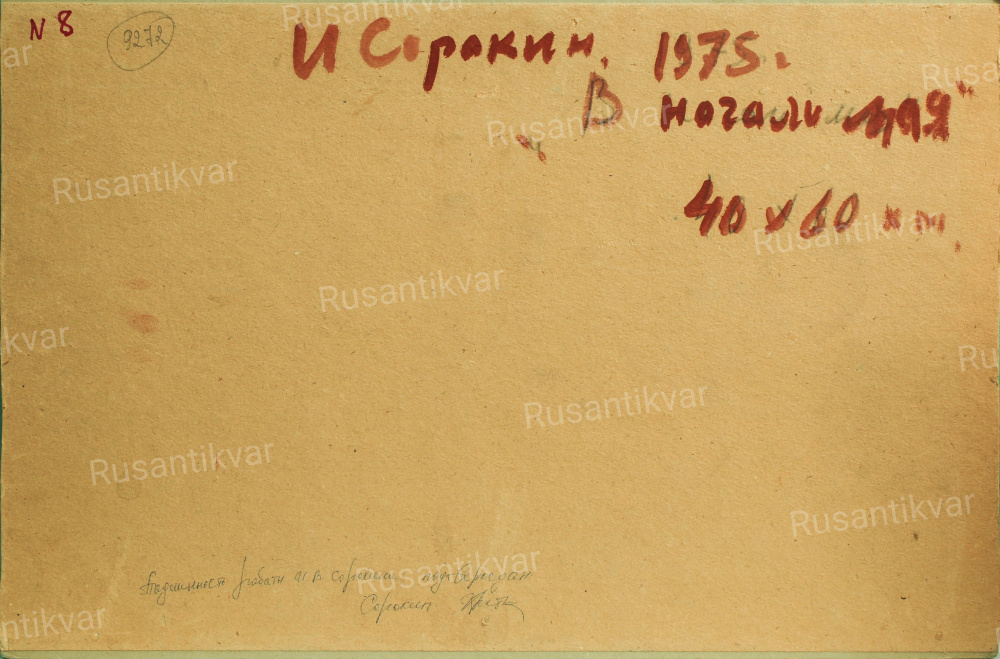 N 8
9272
И Сорокин. 1975г.
"В начале мая"
40 х 60 к м.
Подлинность работы И В Сорокина подтверждаю
Сорокин
Rusantikvar
Rusantikvar
Rusantikvar
Rusantikvar
Rusantikvar
Rusantikvar
Rusantikvar
Rusantikvar
Rusantikvar
Rusantikvar
Rusantikvar